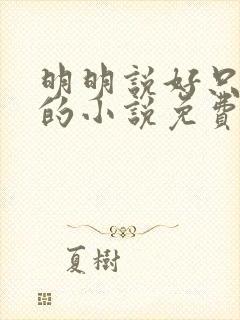 明明說好只
的小說免費
夏樹